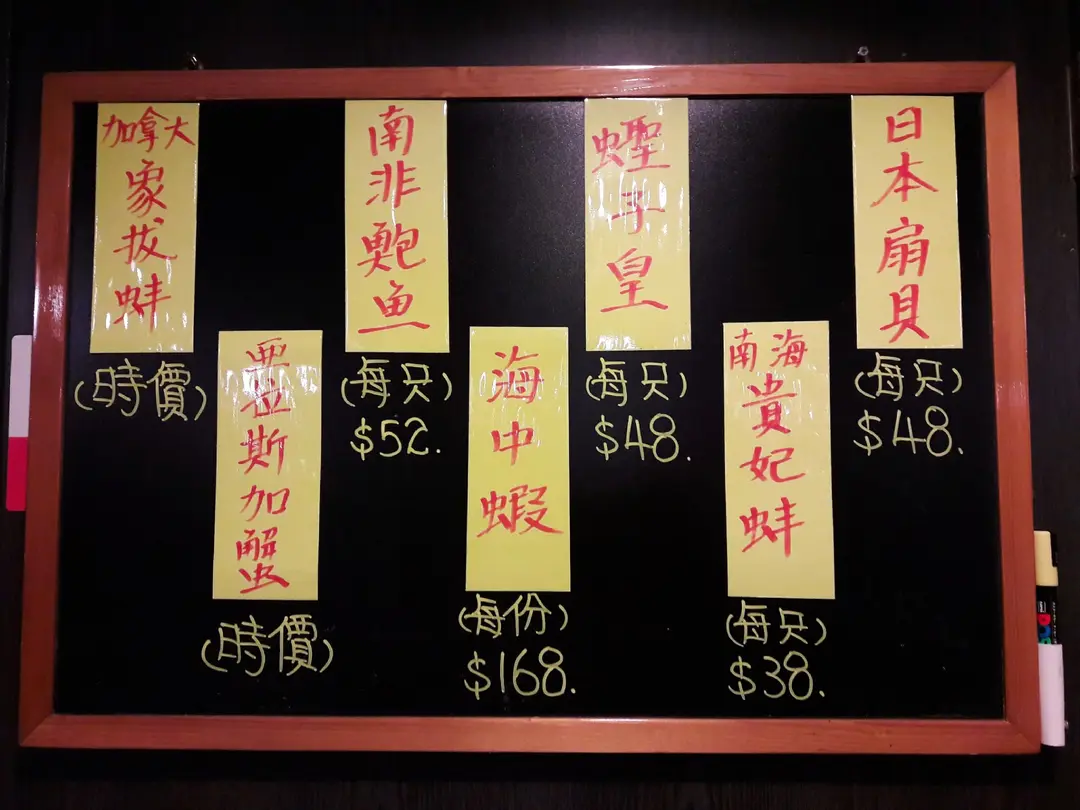 加拿大
象拔蚌
(時價)
亞拉斯加蟹
(時價)
南非鮑鱼
(每只)
$52.
海中蝦
(每份)
$168.
蟶子皇
(每只)
$48.
南海
貴妃蚌
(每只)
$38.
日本扇貝
(每只)
$48.